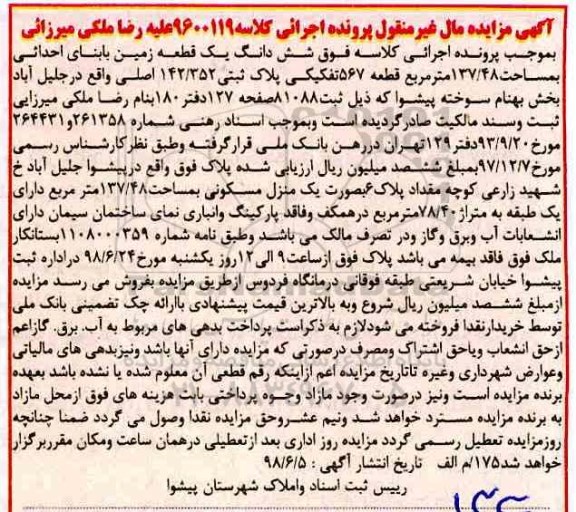 آگهی مزایده مال غیرمنقول پرونده اجرائی کلاسه۹۶۰۰۱۱۹علیه رضا ملکی میرزائی
بموجب پرونده اجرائی کلاسه فوق شش دانگ یک قطعه زمین بابنای احداثی
بمساحت۱۳۷/۴۸مترمربع قطعه ۵۶۷تفکیکی پلاک ثبتی۱۴۲/۳۵۲ اصلی واقع درجلیل آباد
بخش بهنام سوخته پیشوا که ذیل ثبت۸۱۰۸۸صفحه ۱۲۷دفتر۱۸۰بنام رضا ملکی میرزایی
ثبت وسند مالکیت صادرگردیده است وبموجب اسناد رهنی شماره ۲۶۱۳۵۸و۲۶۴۴۳۱
مورخ۹۳/۹/۲۰دفتر۱۲۹تهران دررهن بانک ملی قرارگرفته وطبق نظرکارشناس رسمی
مورخ۹۷/۱۲/۷بمبلغ ششصد میلیون ریال ارزیابی شده پلاک فوق واقع درپیشوا جلیل آباد خ
شهید زارعی کوچه مقداد پلاک۶بصورت یک منزل مسکونی بمساحت۱۳۷/۴۸متر مربع دارای
یک طبقه به متراژ۷۸/۴۰مترمربع درهمکف وفاقد پارکینگ وانباری نمای ساختمان سیمان دارای
انشعابات آب وبرق وگاز ودر تصرف مالک می باشند وطبق نامه شماره ۱۱۰۸۰۰۰۳۵۹بستانکار
ملک فوق فاقد بیمه می باشد پلاک فوق ازساعت۹ الی۱۲روز یکشنبه مورخ۹۸/۶/۲۴ دراداره ثبت
پیشوا خیابان شریعتی طبقه فوقانی درمانگاه فردوس ازطریق مزایده بفروش می رسد مزایده
ازمبلغ ششصد میلیون ریال شروع وبه بالاترین قیمت پیشنهادی باارائه چک تضمینی بانک ملی
توسط خریدارنقدا فروخته می شودلازم به ذکراست پرداخت بدهی های مربوط به آب. برق. گازاعم
ازحق انشعاب ویاحق اشتراک ومصرف درصورتی که مزایده دارای آنها باشد ونیزبدهی های مالیاتی
وعوارض شهرداری وغیره تاتاریخ مزایده اعم ازاینکه رقم قطعی آن معلوم شده یا نشده باشد بعهده
برنده مزایده است ونیز درصورت وجود مازاد وجوه پرداختی بابت هزینه های فوق ازمحل مازاد
به برنده مزایده مسترد خواهد شد ونیم عشروحق مزایده نقدا وصول می گردد ضمنا چنانچه
روزمزایده تعطیل رسمی گردد مزایده روز اداری بعد ازتعطیلی درهمان ساعت ومکان مقرربرگزار
خواهد شد۱۷۵/م الف تاریخ انتشار آگهی : ۹۸/۶/۵
رییس ثبت اسناد واملاک شهرستان پیشوا